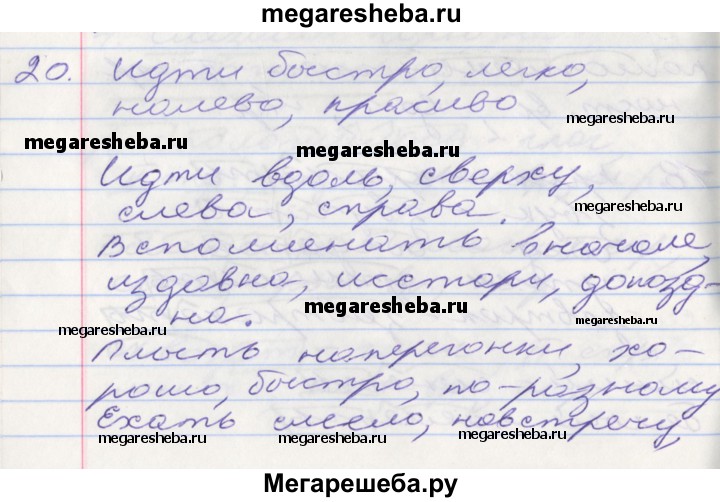 megaresheba.ru
20. Идти быстро, легко,
налево, красиво
megaresheba.ru
megaresheba.ru
megaresheba.ru
Идти вдоль, сверху,
слева, справа.
Вспоминать вначале,
издавна, исстари, допозд-
на.
megaresheba.ru
megaresheba.ru
megaresheba.ru
Плыть наперегонки, хо-
рошо, быстро, по-разному
Ехать смело, навстречу,
megaresheba.ru
megaresheba.ru
megaresheba.ru
Мегарешеба.ру